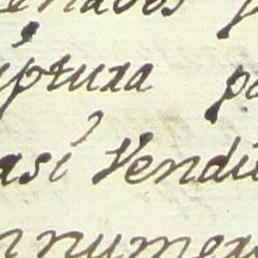 enados p
iptura pa
asi Vendi
n numer